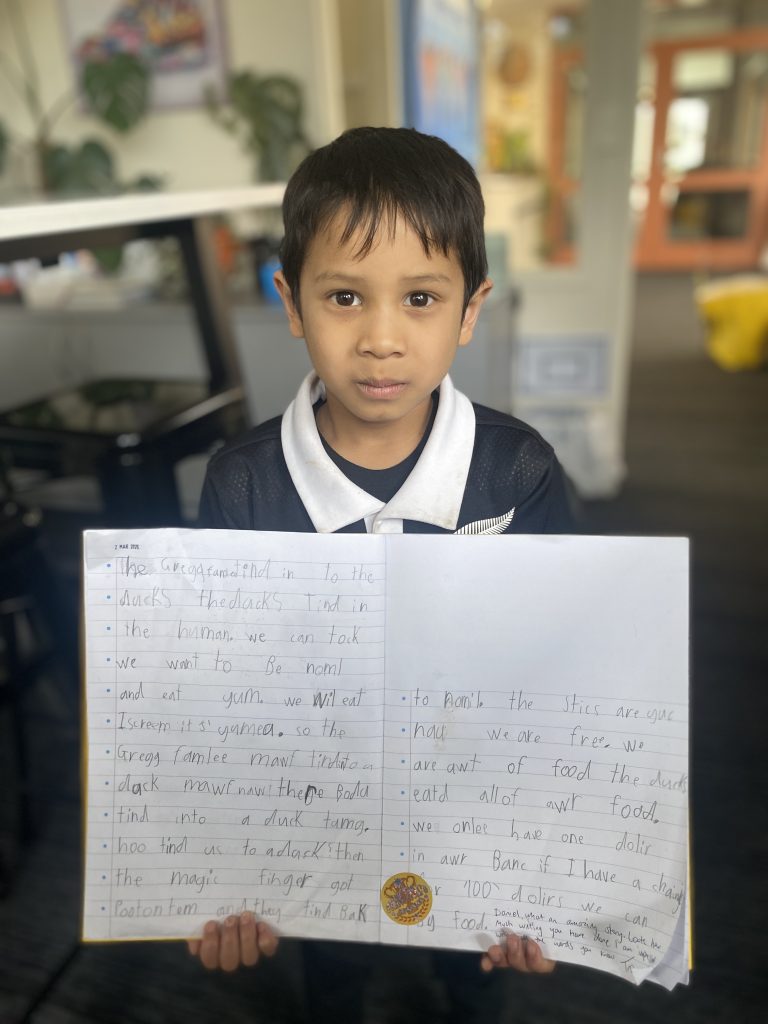 2 MAR 2021
The Gregg famlee tind in to the
ducks theducks Tind in
the human. we can tock
we want to Be noml
and eat yum. we wil eat
Iscreem it s' yumea. so the
Gregg famlee mawf tindinto a
duck mawf naw there Boda
tind into a duck tamg.
hoo tind us to a duck? then
the magic finger got
Pootontem and they tind Bak
to nomil. the stics are yuc
hau we are free. we
are awt of food the ducks
eatd all of awr food.
we onlee have one dolir
in awr Banc if I have a
100 dolirs we can
food.
Daniel, what an amazing story. Look how
much writing you have done. I am
the words you know